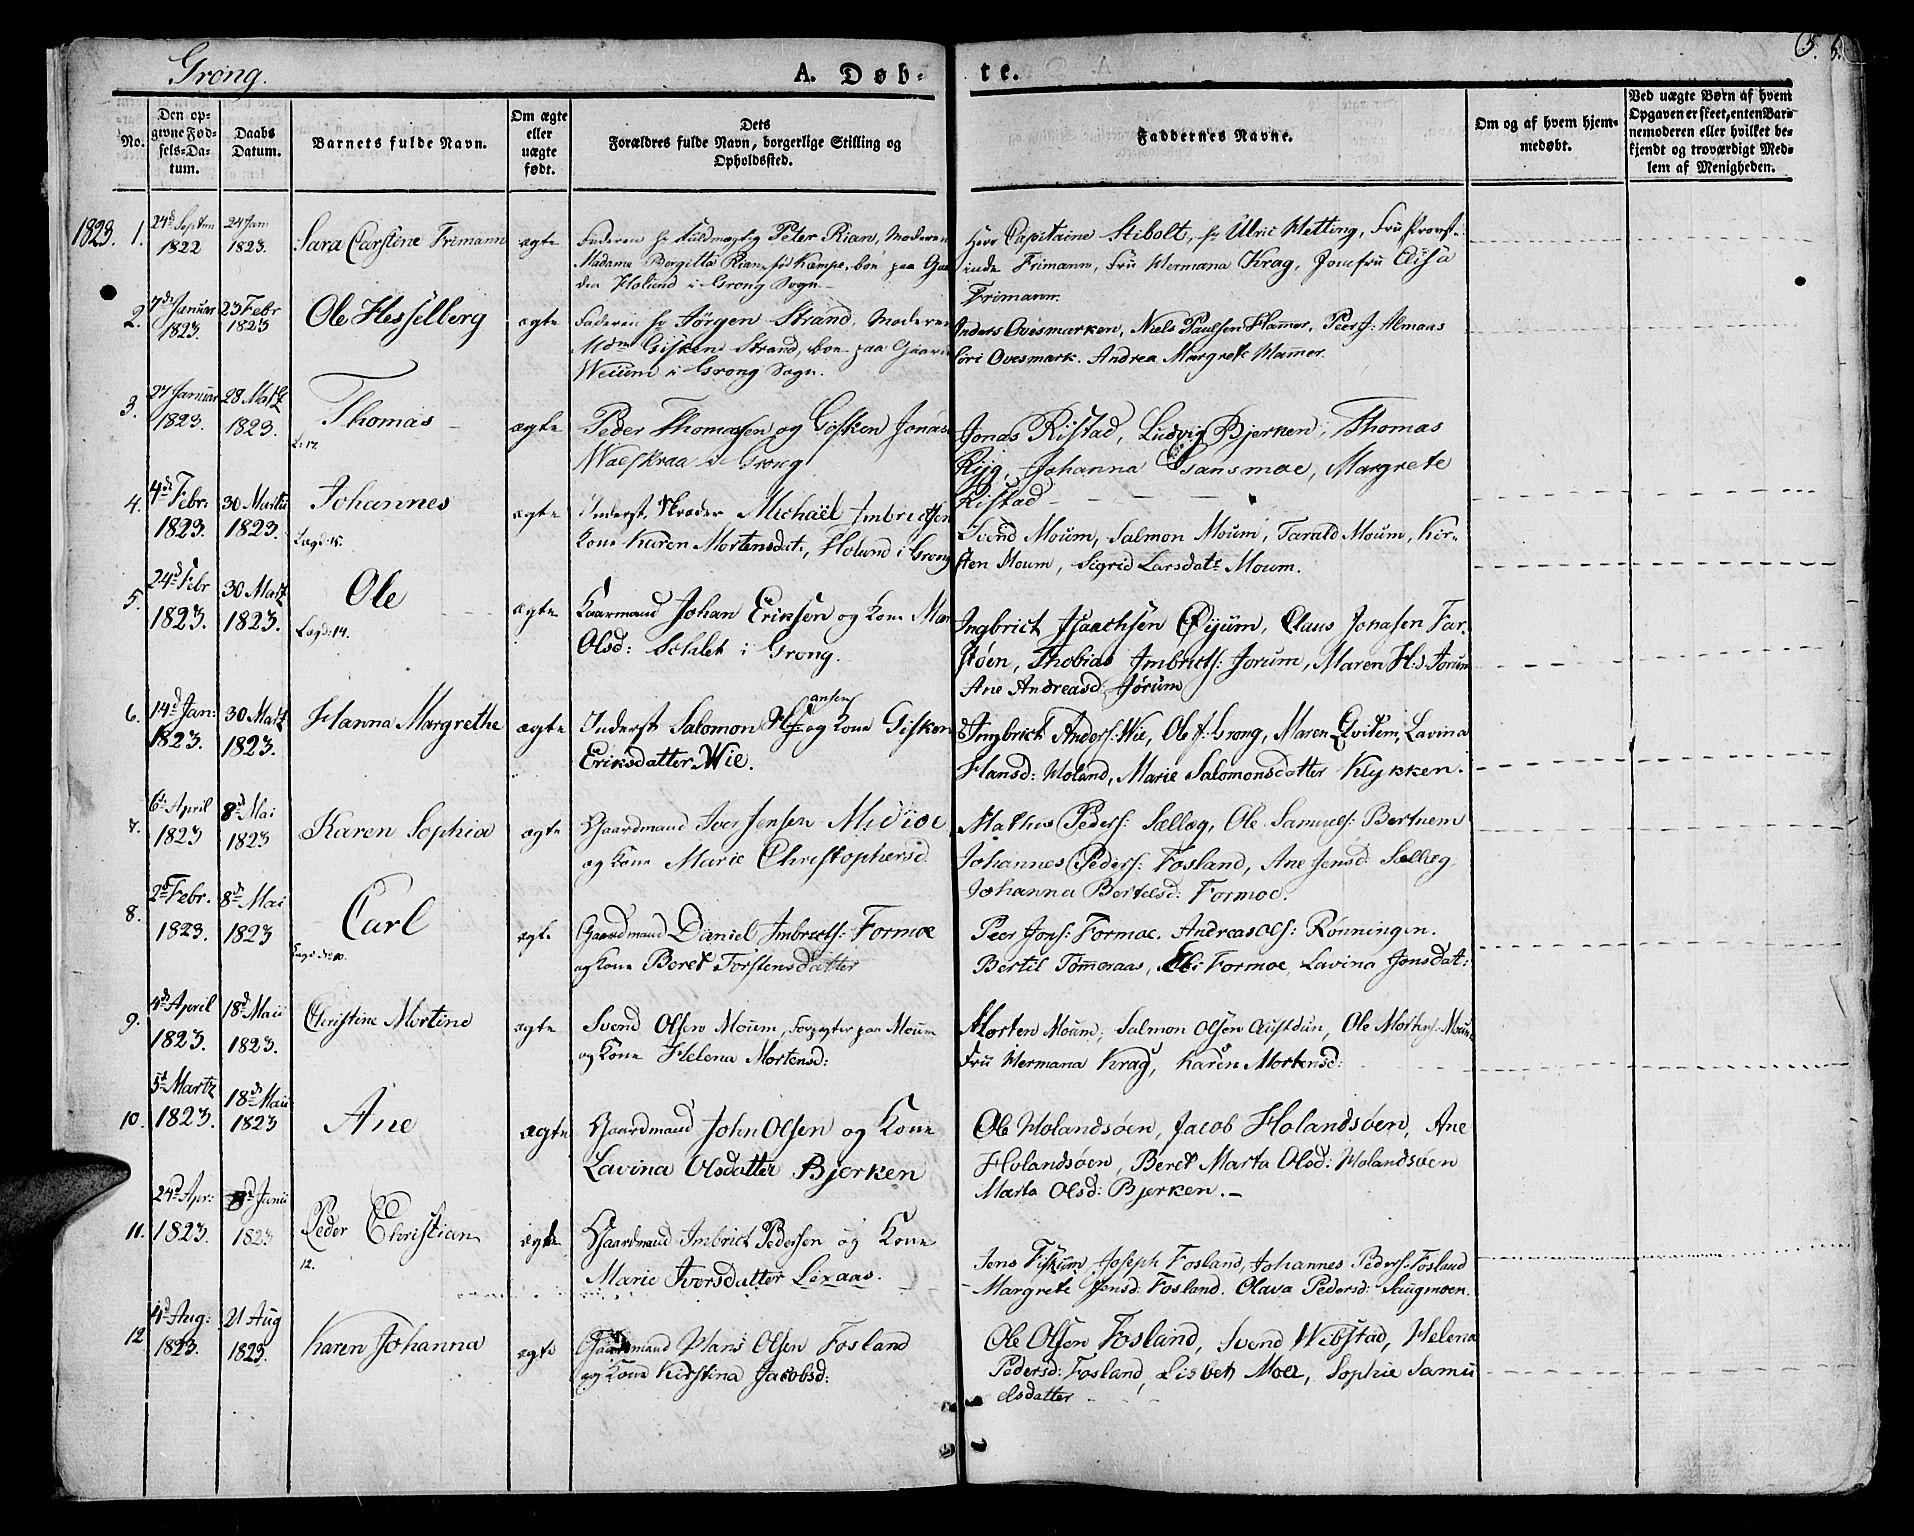 Grong.
A. Døb-
te.
5. 5.
No.
Den op-
givne Fød-
sels-Da-
tum.
Daabs
Datum.
Barnets fulde Navn.
Om ægte
eller
uægte
født.
Dets
Forældres fulde Navn, borgerlige Stilling og
Opholdsted.
Faddernes Navne.
Om og af hvem hjem-
medøbt.
Ved uægte Børn af hvem
Opgaven er skeet, enten Bar-
nemoderen eller hvilket be-
kjendt og troværdigt Med-
lem af Menigheden.
1823. 1.
24d Septem
1822
24 Jan
1823.
Sara Carstine Frimann
ægte
Faderen Hr Fuldmægtig Peter Rian, Moderen
Madame Borgitta Rian, fød Kempe, boe paa Gaar
den Holand i Grong Sogn.
Herr Capitaine Stibolt, Hr Ulric Metting, Fru Provst-
inde Frimann, Fru Hermana Krag, Jomfru Elisa
Frimann.
2.
7de Januar
1823.
23 Febr
1823
Ole Hesselberg
ægte
Faderen Hr Jørgen Strand, Moderen
Mdm Gisken Strand, boe paa Gaard
Weium i Grong Sogn.
Anders Ovesmarken, Niels Paulsen Hammer, Peer J: Almaas
Gori Ovesmark. Andrea Margrete Hammer.
3.
27 Januar
1823.
28 Martz
1823.
Thomas
L: 17.
ægte
Peder Thomasen og Gisken Jonas
i Grong
Jonas Ristad, Ludvig Bjerken, Thomas
Johanna Gansmoe, Margrete
Ristad
4.
4de Febr:
1823.
30 Martii
1823.
Johannes
Lægd: 15.
ægte
Inderst, Skræder Michaël Imbrictsen
Kone Karen Mortensdat:, Holand i Grong
Svend Moum, Salmon Moum, Tarald Moum, Kir-
sten Moum, Sigrid Larsdatr Moum.
5.
24d Febr
1823.
30 Martz
1823.
Ole
Lægd: 14.
ægte
Gaarmand Johan Eriksen og Kone Mar
Olsd: Sehlet i Grong.
Ingbrict Isaachsen Øyum, Claus Jonasen Far-
støen, Thobias Imbricts: Jorum, Maren H:s Jorum
Ane Andreasd Jørum
6.
14d Jan:
1823.
30 Martz
1823.
Hanna Margrethe
ægte
Inderst Salomon Hansen og Kone Gisken
Eriksdatter Wie.
Ingbrict Anders: Wie, Ole J: Grong, Maren Qvitem, Lavina
Hansd: Holand, Marie Salomonsdatter Klykken.
7.
6te April
1823
8d Mai
1823
Karen Sophia
ægte
Gaardmand Iver Jensen Midioe
og Kone Marie Christophersd
Mathis Peders: Sælleg, Ole Samuels: Bertnem
Johannes Peders: Fosland, Ane Jensd: Selleg
Johanna Bertelsd: Formoe.
8.
2d Febr.
1823.
8d Mai
1823
Carl
Lægd No 10.
ægte
Gaardmand Daniel Imbricts: Formoe
og Kone Beret Torstensdatter
Peer Jons: Formoe. Andreas Ols: Rönningen.
Bertil Tömmeraas, Eli Formoe, Lavina Jonsdat:
9.
4d April
1823.
18d Maii
1823.
Christine Mortine
ægte
Svend Olsen Moum, Forpagter paa Moum
og Kone Helena Mortensd:
Morten Moum, Salmon Olsen Austdun, Ole Mortens: Moum
Fru Hermana Krag, Karen Mortensd:
10.
5d Martz
1823.
18d Maii
1823
Ane
ægte
Gaardmand John Olsen og Kone
Lavina Olsdatter Bjerken
Ole Holandsöen, Jacob Holandsöen, Ane
Holandsöen, Beret Marta Olsd: Holandsöen
Marta Olsd: Bjerken. -
11.
24d Apr:
1823.
8d Junii
1823
Peder Christian
12.
ægte
Gaardmand Imbrict Pedersen og Kone
Marie Iversdatter Lexaas.
Jens Fiskum, Joseph Fosland, Johannes Peders: Fosland
Margrete Jensd: Fosland. Olava Pedersd: Saugmoen.
12
4d Aug:
1823.
21 Aug
1823.
Karen Johanna
ægte
Gaardmand Hans Olsen Fosland
og Kone Kirstina Jacobsd:
Ole Olsen Fosland, Svend Wibstad, Helena
Pedersd: Fosland, Lisbet Moe, Sophie Samu
elsdatter